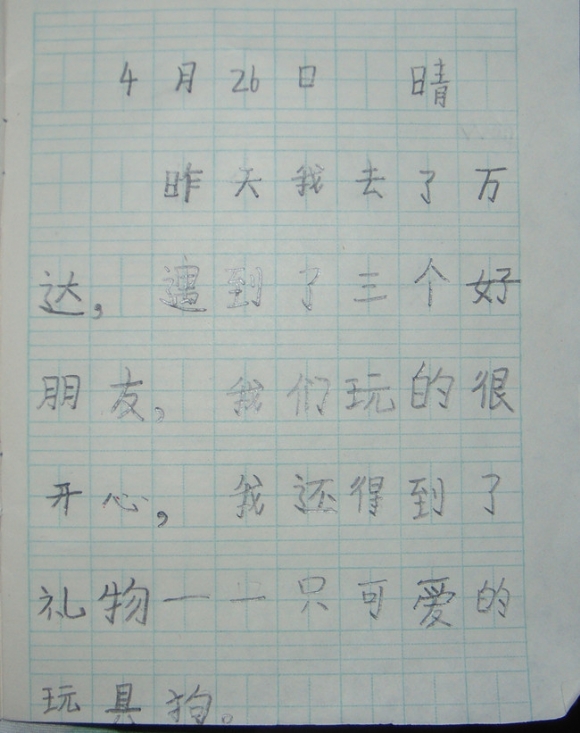 4月26日 晴
昨天我去了万
达，遇到了三个好
朋友，我们玩的很
开心，我还得到了
礼物一一只可爱的
玩具狗。